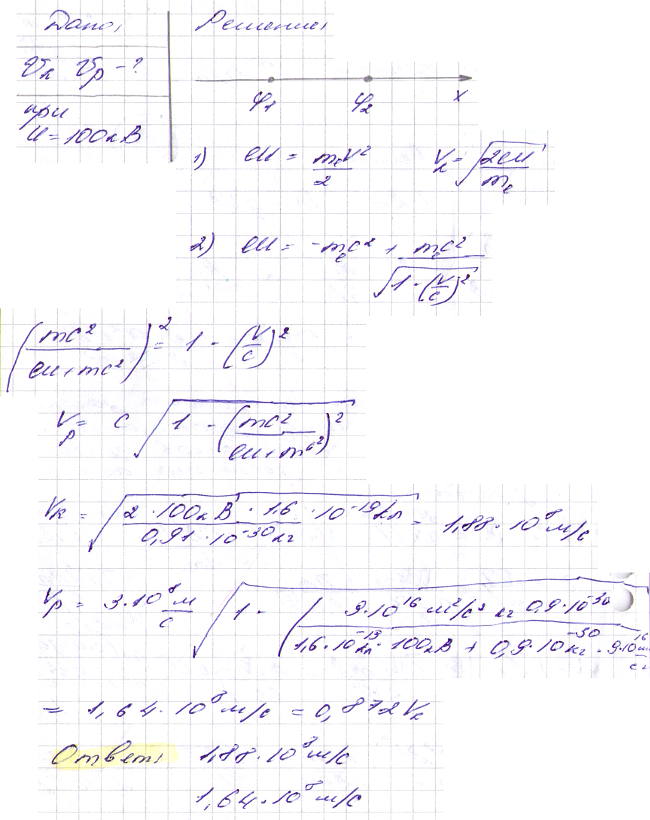 Дано: Решение:
Vк Vp - ?
при
U = 100кВ
φ1 φ2 x
1) eU = mₑV²/2 Vк = √(2eU/mₑ)
2) eU = -mₑc² + mₑc²/√(1-(V/c)²)
(mc²/(eU+mc²))² = 1 - (V/c)²
Vp = c √(1 - (mc²/(eU+mc²))²)
Vк = √(2·100кВ·1,6·10⁻¹⁹Кл/0,91·10⁻³⁰кг) = 1,88·10⁸ м/с
Vp = 3·10⁸ м/с √(1 - (9·10¹⁶ м²/с² кг 0,9·10⁻³⁰/1,6·10⁻¹⁹Кл·100кВ + 0,9·10⁻³⁰кг·9·10¹⁶
= 1,64·10⁸ м/с = 0,872 Vк
Ответ: 1,88·10⁸ м/с
1,64·10⁸ м/с